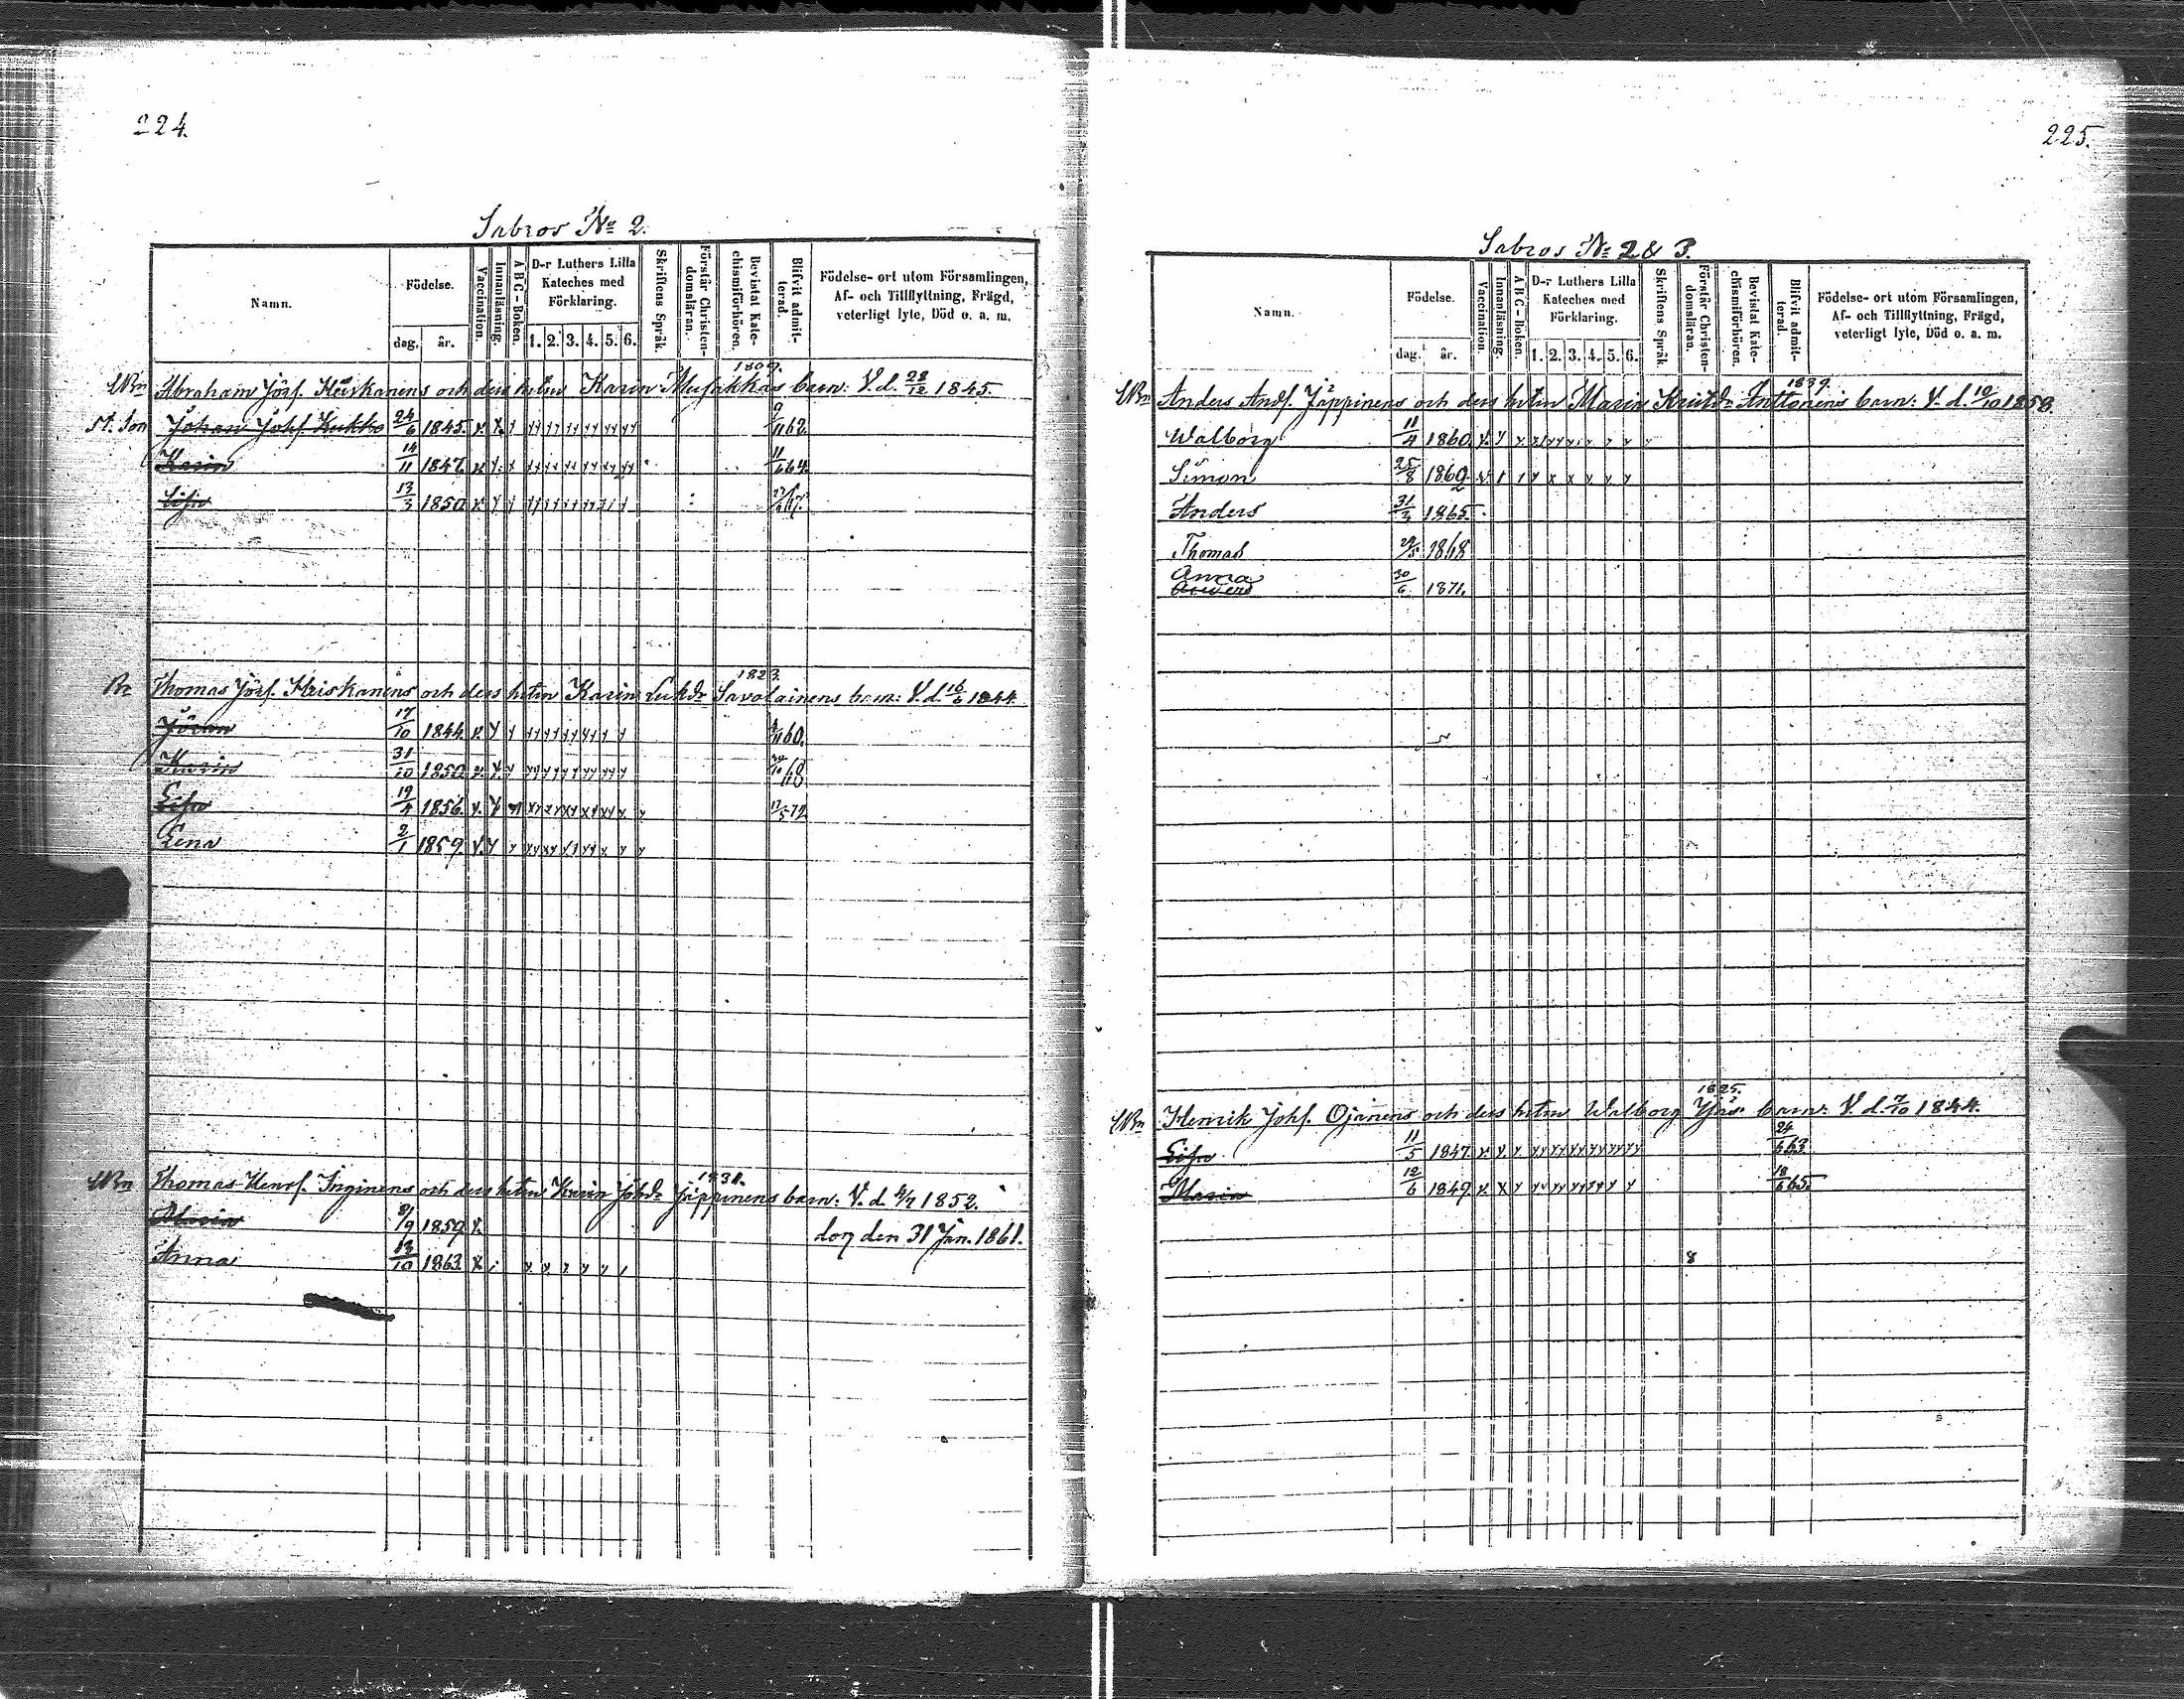 224.
Sabros No 2.
Namn.
Födelse.
dag. år.
Vaccination.
Innanläsning.
A B C - Boken.
D-r Luthers Lilla Kateches med Förklaring.
1. 2. 3. 4. 5. 6.
Skriftens Språk.
Förstår Christen-domsläran.
Bevistat Kate-chismiförhören.
Blifvit admit-terad.
Födelse- ort utom Församlingen,
Af- och Tillflyttning, Frägd,
veterligt lyte, Död o. a. m.
1809.
Abraham Jörs. Heiskanens och dess hstru Karin Musakkas barn: V. d. 28/12 1845.
St. Son Johan Johs. Kukko 24/6 1845. 9/11 62
Karin 14/11 1847. 11/6 64.
Lisa 13/3 1850 67.
1823.
Thomas Jörs. Heiskanens och dess hstru Karin Lukdr Savolainens barn: V. d. 16/6 1844.
Jöran 17/10 1844. 60.
Karin 31/10 1850. 68
Lisa 19/4 1856. 17/5 72
Lena 2/1 1859.
1831.
Thomas Henrs. Inginens och dess hstru Karin Johdr Jäppinens barn: V. d. 1852.
Maria 8/9 1859 dog den 31 Jan. 1861.
Anna 13/10 1863
225.
Sabros No 2 & 3.
Namn.
Födelse.
dag. år.
Vaccination.
Innanläsning.
A B C - Boken.
D-r Luthers Lilla Kateches med Förklaring.
1. 2. 3. 4. 5. 6.
Skriftens Språk
Förstår Christen-domsläran.
Bevistat Kate-chismiförhören.
Blifvit admit-terad.
Födelse- ort utom Församlingen,
Af- och Tillflyttning, Frägd,
veterligt lyte, Död o. a. m.
1839.
Anders Ands. Jäppinens och dess hstru Maria Kristdr Anttonens barn: V. d. 10/10 1858.
Walborg 11/4 1860
Simon 25/8 1862
Anders 31/3 1865.
Thomas 29/5 1868
Anna
30/6 1871.
1825.
Henrik Johs. Ojanens och dess hstru Walborg barn: V. d. 7/10 1844.
Lisa 11/5 1847. 24/6 63
Maria 12/6 1849. 18/6 65.